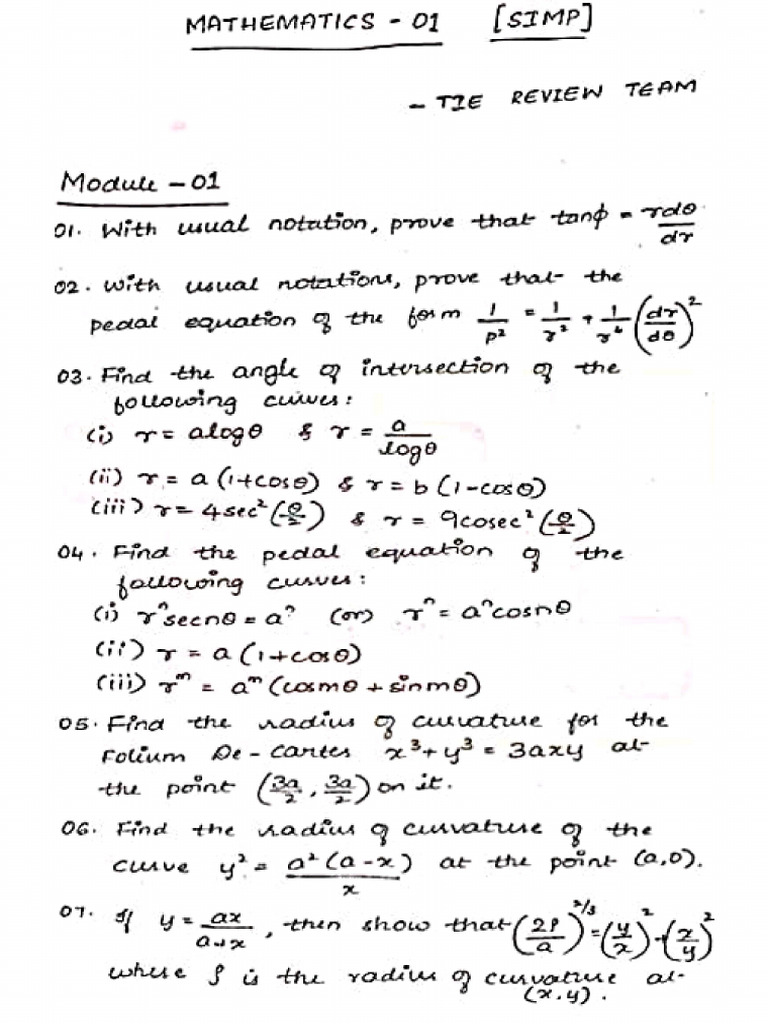 MATHEMATICS - 01 [SIMP]
- TIE REVIEW TEAM
Module - 01
01. With usual notation, prove that tanϕ = rdθ/dr
02. With usual notations, prove that the
pedal equation of the form 1/p² = 1/r² + 1/r⁴ (dr/dθ)²
03. Find the angle of intersection of the
following curves:
(i) r = alogθ & r = a/logθ
(ii) r = a(1+cosθ) & r = b(1-cosθ)
(iii) r = 4sec²(θ/2) & r = 9cosec²(θ/2)
04. Find the pedal equation of the
following curves:
(i) rⁿsecnθ = aⁿ (or) rⁿ = aⁿcosnθ
(ii) r = a(1+cosθ)
(iii) rᵐ = aᵐ(cosmθ + sinmθ)
05. Find the radius of curvature for the
Folium De-Cartes x³+y³ = 3axy at
the point (3a/2, 3a/2) on it.
06. Find the radius of curvature of the
curve y² = a²(a-x)/x at the point (a,0).
07. If y = ax/a+x, then show that (2ρ/a)^2/3 = (y/x)² + (x/y)²
where ρ is the radius of curvature at
(x,y).